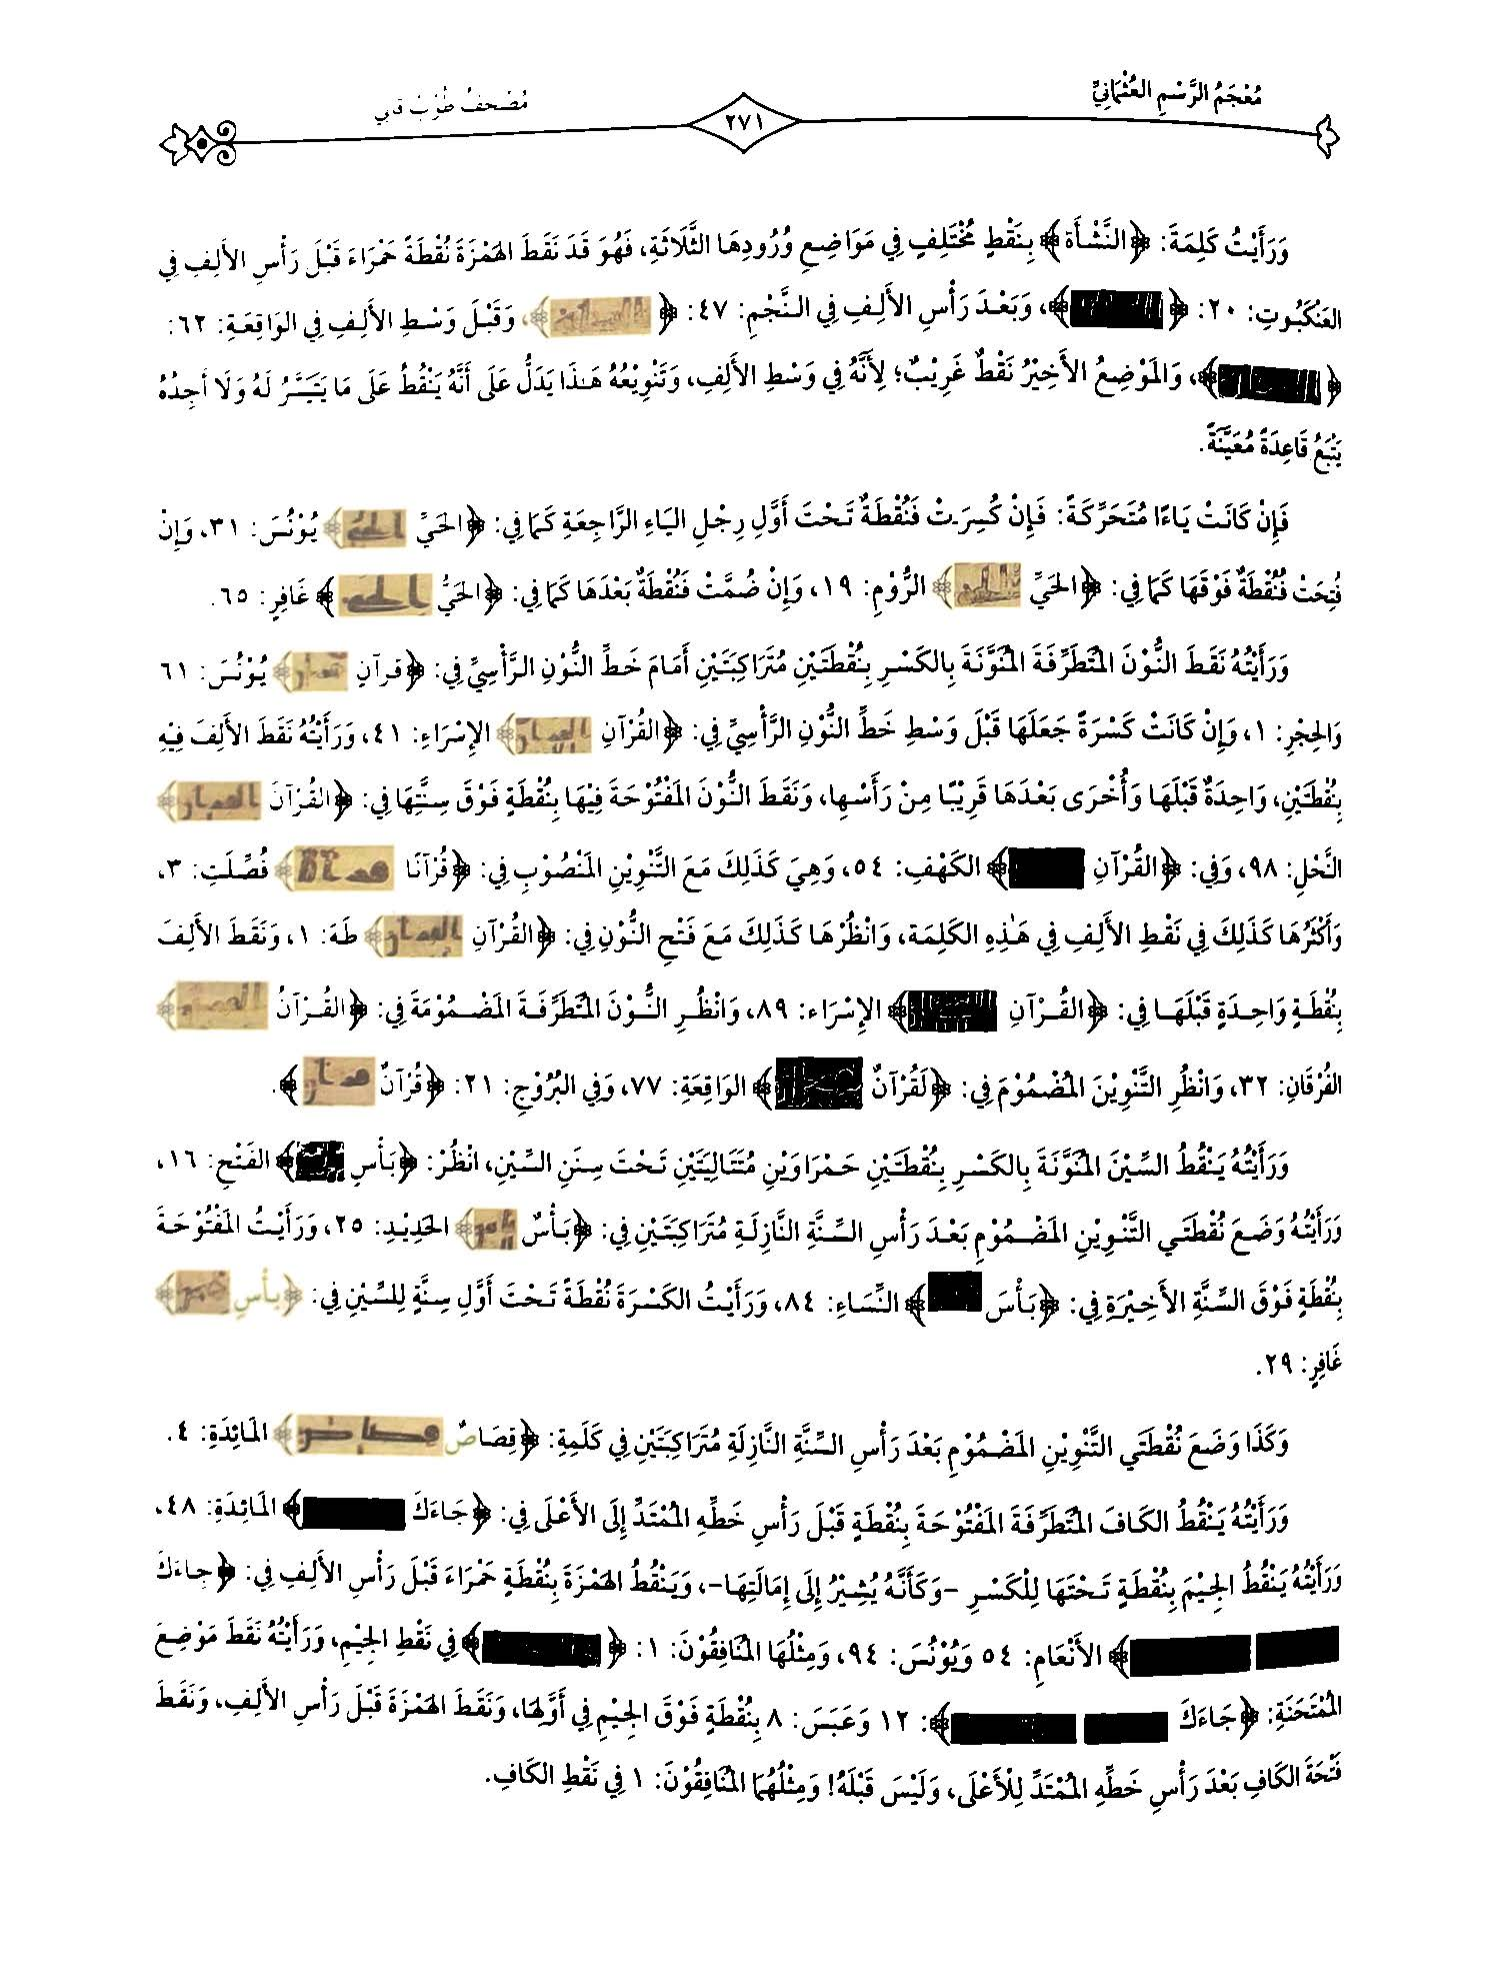 مُعْجَمُ الرَّسْمِ العُثْمَانِيِّ
٢٧١
مُصْحَفُ طُوْبْ قَابِي
وَرَأَيْتُ كَلِمَةَ: ﴿النَّشْأَةَ﴾ بِنَقْطٍ مُخْتَلِفٍ فِي مَوَاضِعِ وُرُودِهَا الثَّلَاثَةِ، فَهُوَ قَدْ نَقَطَ الهَمْزَةَ نُقْطَةً حَمْرَاءَ قَبْلَ رَأْسِ الأَلِفِ فِي
العَنْكَبُوتِ: ٢٠: ﴿ ﴾، وَبَعْدَ رَأْسِ الأَلِفِ فِي النَّجْمِ: ٤٧: ﴿ ﴾، وَقَبْلَ وَسْطِ الأَلِفِ فِي الوَاقِعَةِ: ٦٢:
﴿ ﴾، وَالمَوْضِعُ الأَخِيْرُ نَقْطٌ غَرِيْبٌ؛ لِأَنَّهُ فِي وَسْطِ الأَلِفِ، وَتَنْوِيْعُهُ هَذَا يَدَلُّ عَلَى أَنَّهُ يَنْقُطُ عَلَى مَا يَتَيَسَّرُ لَهُ وَلَا أَجِدُهُ
يَتْبَعُ قَاعِدَةً مُعَيَّنَةً.
فَإِنْ كَانَتْ يَاءًا مُتَحَرِّكَةً: فَإِنْ كُسِرَتْ فَنُقْطَةٌ تَحْتَ أَوَّلِ رِجْلِ اليَاءِ الرَّاجِعَةِ كَمَا فِي: ﴿الحَيِّ ﴾ يُوْنُسَ: ٣١، وَإِنْ
فُتِحَتْ فَنُقْطَةٌ فَوْقَهَا كَمَا فِي: ﴿الحَيِّ ﴾ الرُّوْمِ: ١٩، وَإِنْ ضُمَّتْ فَنُقْطَةٌ بَعْدَهَا كَمَا فِي: ﴿الحَيُّ ﴾ غَافِرٍ: ٦٥.
وَرَأَيْتُهُ نَقَطَ النُّوْنَ المُتَطَرِّفَةَ المُنَوَّنَةَ بِالكَسْرِ بِنُقْطَتَيْنِ مُتَرَاكِبَتَيْنِ أَمَامَ خَطِّ النُّوْنِ الرَّأْسِيِّ فِي: ﴿قرآنٍ ﴾ يُوْنُسَ: ٦١
وَالحِجْرِ: ١، وَإِنْ كَانَتْ كَسْرَةً جَعَلَهَا قَبْلَ وَسْطِ خَطِّ النُّوْنِ الرَّأْسِيِّ فِي: ﴿القُرْآنِ ﴾ الإِسْرَاءِ: ٤١، وَرَأَيْتُهُ نَقَطَ الأَلِفَ فِيْهِ
بِنُقْطَتَيْنِ، وَاحِدَةٌ قَبْلَهَا وَأُخْرَى بَعْدَهَا قَرِيْبًا مِنْ رَأْسِهَا، وَنَقَطَ النُّوْنَ المَفْتُوْحَةَ فِيْهَا بِنُقْطَةٍ فَوْقَ سِنَّتِهَا فِي: ﴿القُرْآنَ ﴾
النَّحْلِ: ٩٨، وَفِي: ﴿القُرْآنِ ﴾ الكَهْفِ: ٥٤، وَهِيَ كَذَلِكَ مَعَ التَّنْوِيْنِ المَنْصُوْبِ فِي: ﴿قُرْآنًا ﴾ فُصِّلَتِ: ٣،
وَأَكْثَرُهَا كَذَلِكَ فِي نَقْطِ الأَلِفِ فِي هَذِهِ الكَلِمَةِ، وَانْظُرْهَا كَذَلِكَ مَعَ فَتْحِ النُّوْنِ فِي: ﴿القُرْآنِ ﴾ طَهَ: ١، وَنَقَطَ الأَلِفَ
بِنُقْطَةٍ وَاحِدَةٍ قَبْلَهَا فِي: ﴿القُرْآنِ ﴾ الإِسْرَاء: ٨٩، وَانْظُرِ النُّوْنَ المُتَطَرِّفَةَ المَضْمُوْمَةَ فِي: ﴿القُرْآنُ ﴾
الفُرْقَانِ: ٣٢، وَانْظُرِ التَّنْوِيْنَ المُضْمُوْمَ فِي: ﴿لَقُرْآنٌ ﴾ الوَاقِعَةِ: ٧٧، وَفِي البُرُوْجِ: ٢١: ﴿قُرْآنٌ ﴾.
وَرَأَيْتُهُ يَنْقُطُ السِّيْنَ المُنَوَّنَةَ بِالكَسْرِ بِنُقْطَتَيْنِ حَمْرَاوَيْنِ مُتَتَالِيَتَيْنِ تَحْتَ سِنَنِ السِّيْنِ، انْظُرْ: ﴿بَأْسٍ ﴾ الفَتْحِ: ١٦،
وَرَأَيْتُهُ وَضَعَ نُقْطَتَي التَّنْوِيْنِ المَضْمُوْمِ بَعْدَ رَأْسِ السِّنَّةِ النَّازِلَةِ مُتَرَاكِبَتَيْنِ فِي: ﴿بَأْسٌ ﴾ الحَدِيْدِ: ٢٥، وَرَأَيْتُ المَفْتُوْحَةَ
بِنُقْطَةٍ فَوْقَ السِّنَّةِ الأَخِيْرَةِ فِي: ﴿بَأْسَ ﴾ النِّسَاءِ: ٨٤، وَرَأَيْتُ الكَسْرَةَ نُقْطَةً تَحْتَ أَوَّلِ سِنَّةٍ لِلسِّيْنِ فِي: ﴿بَأْسِ ﴾
غَافِرٍ: ٢٩.
وَكَذَا وَضَعَ نُقْطَتَي التَّنْوِيْنِ المَضْمُوْمِ بَعْدَ رَأْسِ السِّنَّةِ النَّازِلَةِ مُتَرَاكِبَتَيْنِ فِي كَلِمَةِ: ﴿قِصَاصٌ ﴾ المَائِدَةِ: ٤.
وَرَأَيْتُهُ يَنْقُطُ الكَافَ المُتَطَرِّفَةَ المَفْتُوْحَةَ بِنُقْطَةٍ قَبْلَ رَأْسِ خَطِّهِ المُمْتَدِّ إِلَى الأَعْلَى فِي: ﴿جَاءَكَ ﴾ المَائِدَةِ: ٤٨،
وَرَأَيْتُهُ يَنْقُطُ الجِيْمَ بِنُقْطَةٍ تَحْتَهَا لِلْكَسْرِ -وَكَأَنَّهُ يُشِيْرُ إِلَى إِمَالَتِهَا-، وَيَنْقُطُ الهَمْزَةَ بِنُقْطَةٍ حَمْرَاءَ قَبْلَ رَأْسِ الأَلِفِ فِي: ﴿جِاءَكَ
﴾ الأَنْعَامِ: ٥٤ وَيُوْنُسَ: ٩٤، وَمِثْلُهَا المُنَافِقُوْنَ: ١: ﴿ ﴾ فِي نَقْطِ الجِيْمِ، وَرَأَيْتُهُ نَقَطَ مَوْضِعَ
المُمْتَحَنَةِ: ﴿جَاءَكَ ﴾: ١٢ وَعَبَسَ: ٨ بِنُقْطَةٍ فَوْقَ الجِيْمِ فِي أَوَّلِهَا، وَنَقَطَ الهَمْزَةَ قَبْلَ رَأْسِ الأَلِفِ، وَنَقَطَ
فَتْحَةَ الكَافِ بَعْدَ رَأْسِ خَطِّهِ المُمْتَدِّ لِلْأَعْلَى، وَلَيْسَ قَبْلَهُ! وَمِثْلُهُمَا المُنَافِقُوْنَ: ١ فِي نَقْطِ الكَافِ.